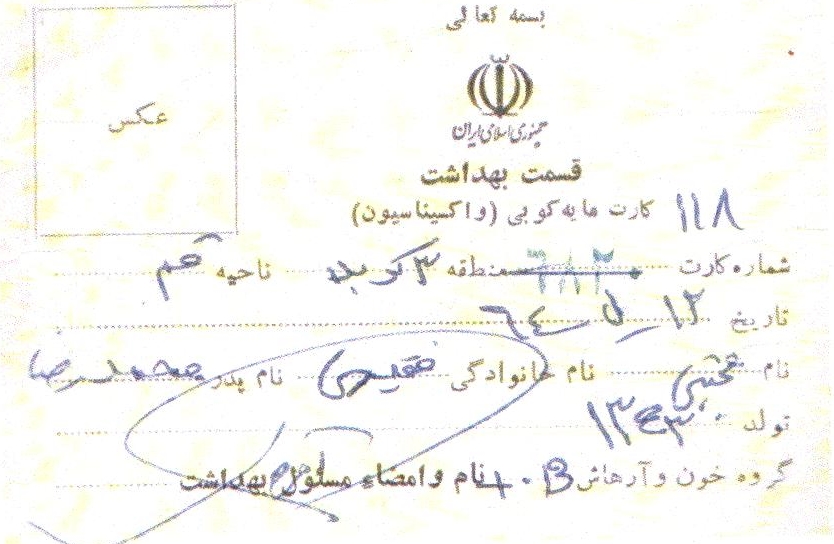 بسمه تعالی
عکس
جمهوری اسلامی ایران
قسمت بهداشت
کارت مایه کوبی (واکسیناسیون) ۱۱۸
شماره کارت منطقه ۳ ناحیه
تاریخ ۱۲ ۶۴
نام مجتبی نام خانوادگی نام پدر محمد رضا
تولد
گروه خون و آرهاش B+ نام و امضاء مسئول بهداشت